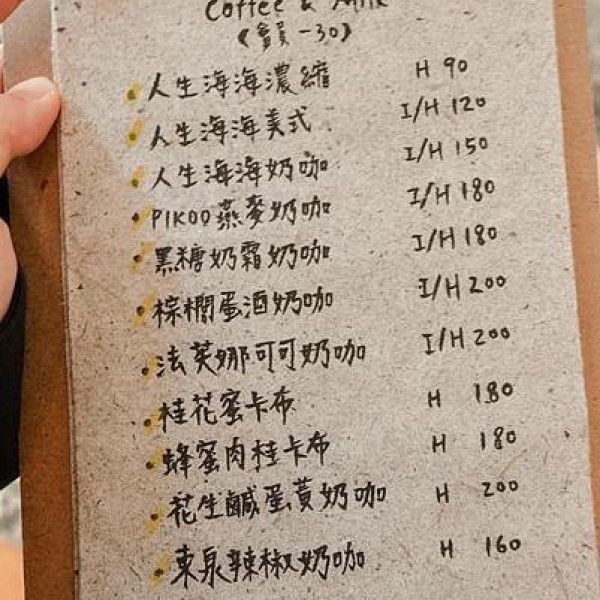 Coffee & Milk
(會員-30)
人生海海濃縮 H 90
人生海海美式 I/H 120
人生海海奶咖 I/H 150
PIKOO燕麥奶咖 I/H 180
黑糖奶霜奶咖 I/H 180
棕櫚蛋酒奶咖 I/H 200
法芙娜可可奶咖 I/H 200
桂花蜜卡布 H 180
蜂蜜肉桂卡布 H 180
花生鹹蛋黃奶咖 H 200
東泉辣椒奶咖 H 160